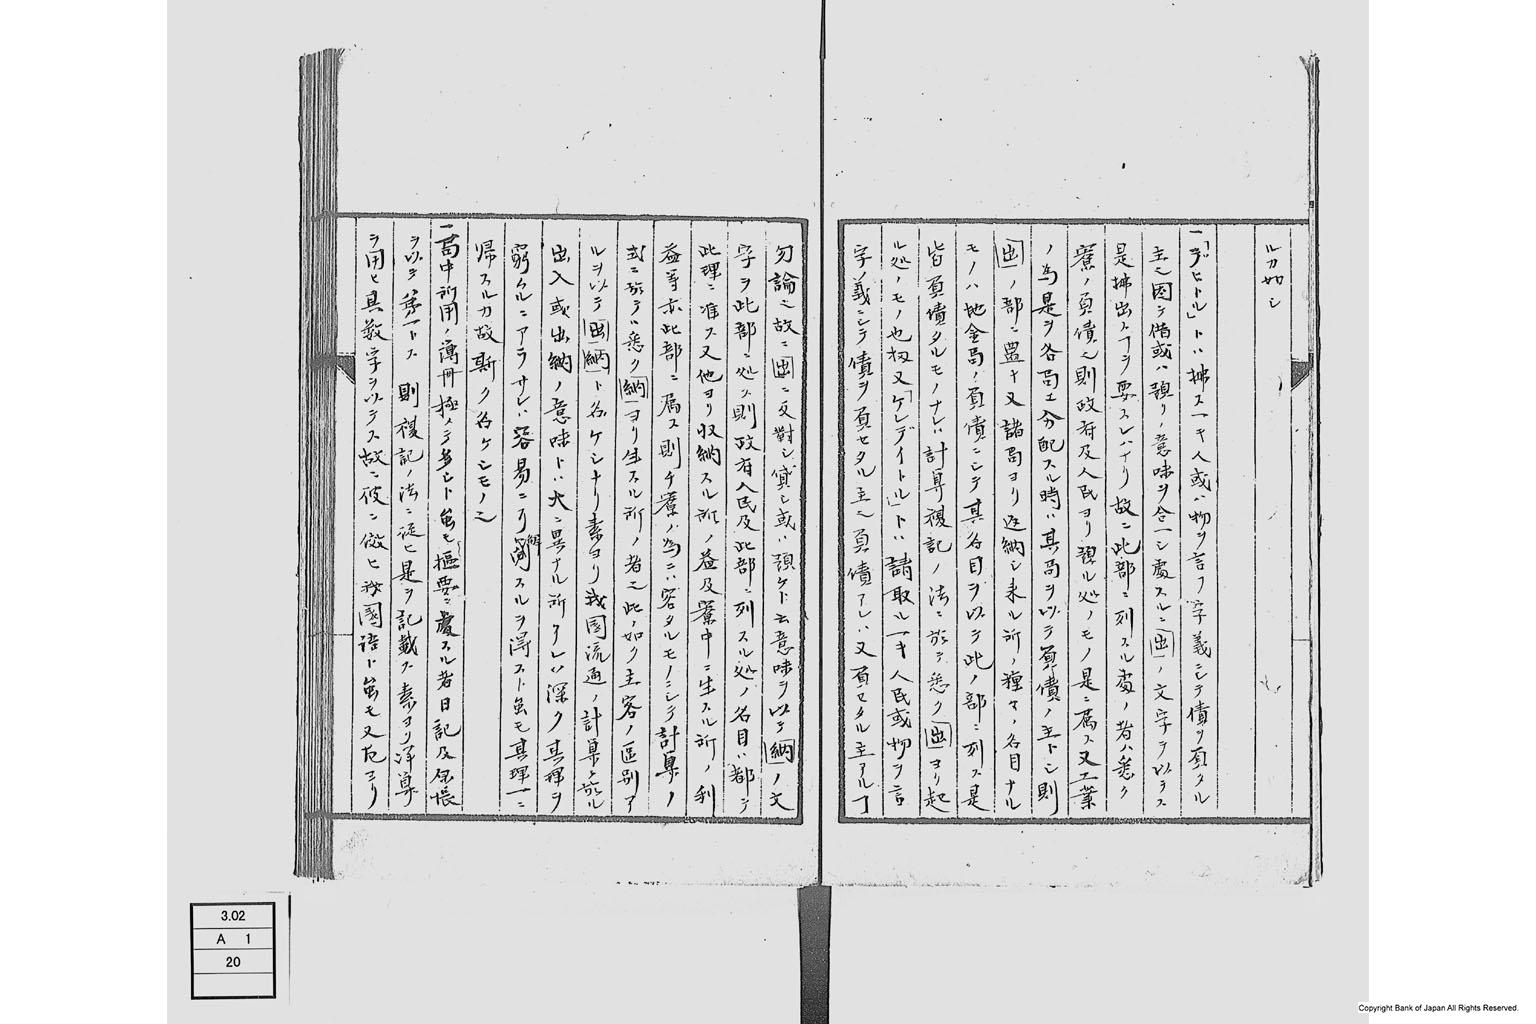 ルカ如シ
一「デビトル」トハ拂スヘキ人或ハ物ヲ言フ字義ニシテ債ヲ負タル
主ニ因テ借或ハ預リノ意味ヲ合一シ處スルニ出ノ文字ヲ以テス
是拂出スヿヲ要スレハナリ故ニ此部ニ列スル處ノ者ハ悉ク
寮ノ負債ニ則政府及人民ヨリ預ル処ノモノ是ニ属ス又工業
ノ為是ヲ各局エ分配スル時ハ其局ヲ以テ負債ノ主トシ則
出ノ部ニ置キ又諸局ヨリ返納シ来ル所ノ種々ノ名目ナル
モノハ地金局ノ負債ニシテ其名目ヲ以テ此ノ部ニ列ス是
皆負債タルモノナレハ計算複記ノ法ニ於テ悉ク出ヨリ起
ル処ノモノ也扨又「ケレデイトル」トハ請取ルヘキ人民或物ヲ言
字ノ義ニシテ債ヲ負セタル主ニ負債アレハ又負セタル主アルヿ
勿論ニ故ニ出ニ反對シ貸シ或ハ預ケト云意味ヲ以テ納ノ文
字ヲ此部ニ処ス則政府人民及此部ニ列スル処ノ名目ハ都テ
此理ニ准ス又他ヨリ収納スル所ノ益及寮中ニ生スル所ノ利
益等亦此部ニ属ス則チ寮ノ為ニハ客タルモノニシテ計算ノ
式ニ於テハ悉ク納ヨリ生スル所ノ者ニ此ノ如ク主客ノ區別ア
ルヲ以テ出納ト名ケシナリ素ヨリ我国流通ノ計算ニ於ル
出入或出納ノ意味トハ大ニ異ナル所アレハ深ク其理ヲ
窮ムルニアラサレハ容易ニ了解スルヲ得スト虽モ其理一ニ
帰スルカ故斯ク名ケシモノニ
一當中所用ノ簿冊極メテ多シト虽モ樞要ニ處スル者日記及原帳
ヲ以テ第一トス則複記ノ法ニ従ヒ是ヲ記載ス素ヨリ洋算
ヲ用ヒ其数字ヲ以テス故ニ彼ニ倣ヒ我國語ト虽モ又左ヨリ
3.02
A 1
20
Copyright Bank of Japan All Rights Reserved.